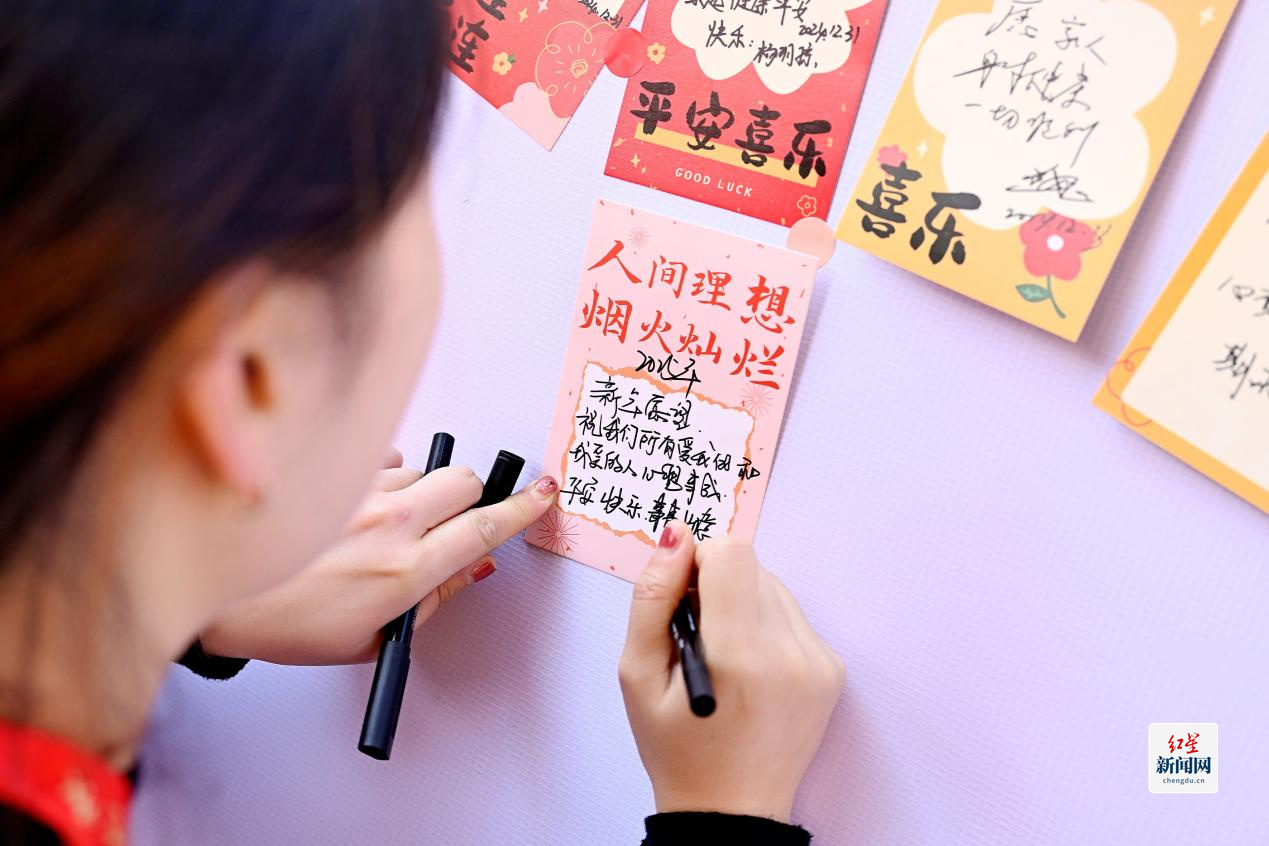 连
2024.12.31
快乐:
2024.12.31
平安喜乐
GOOD LUCK
家人
身体健康
一切顺利
喜乐
人间理想
烟火灿烂
2025年
新年愿望
祝我们所有爱我的和
我爱的人心想事成
平安快乐
红星
新闻网
chengdu.cn